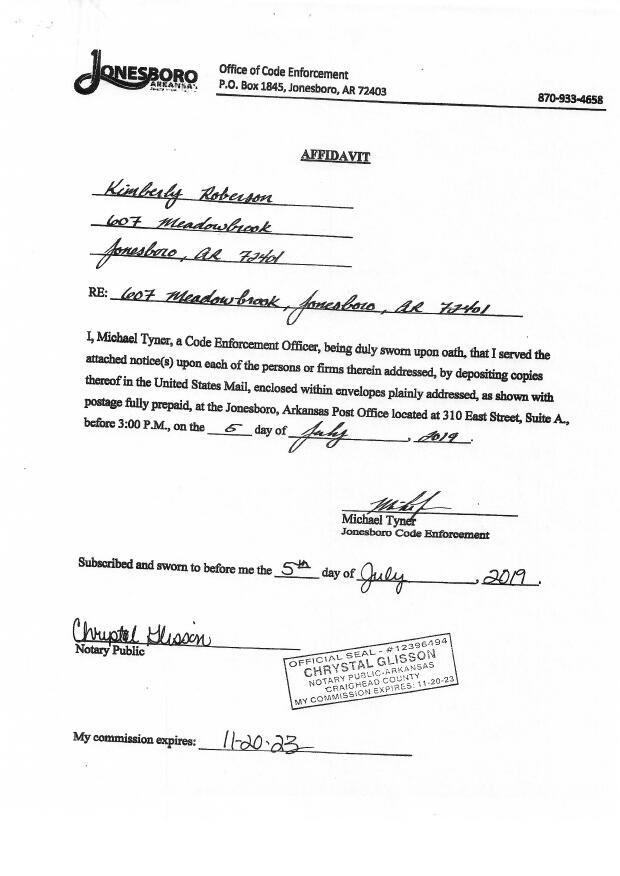 JONESBORO
ARKANSAS
Office of Code Enforcement
P.O. Box 1845, Jonesboro, AR 72403
870-933-4658
AFFIDAVIT
Kimberly Roberson
607 Meadowbrook
Jonesboro, AR 72401
RE: 607 Meadowbrook, Jonesboro, AR 72401
I, Michael Tyner, a Code Enforcement Officer, being duly sworn upon oath, that I served the
attached notice(s) upon each of the persons or firms therein addressed, by depositing copies
thereof in the United States Mail, enclosed within envelopes plainly addressed, as shown with
postage fully prepaid, at the Jonesboro, Arkansas Post Office located at 310 East Street, Suite A.,
before 3:00 P.M., on the 5 day of July, 2019.
Michael Tyner
Jonesboro Code Enforcement
Subscribed and sworn to before me the 5th day of July, 2019.
Chrystal Glisson
Notary Public
OFFICIAL SEAL - #12396494
CHRYSTAL GLISSON
NOTARY PUBLIC-ARKANSAS
CRAIGHEAD COUNTY
MY COMMISSION EXPIRES: 11-20-23
My commission expires: 11-20-23